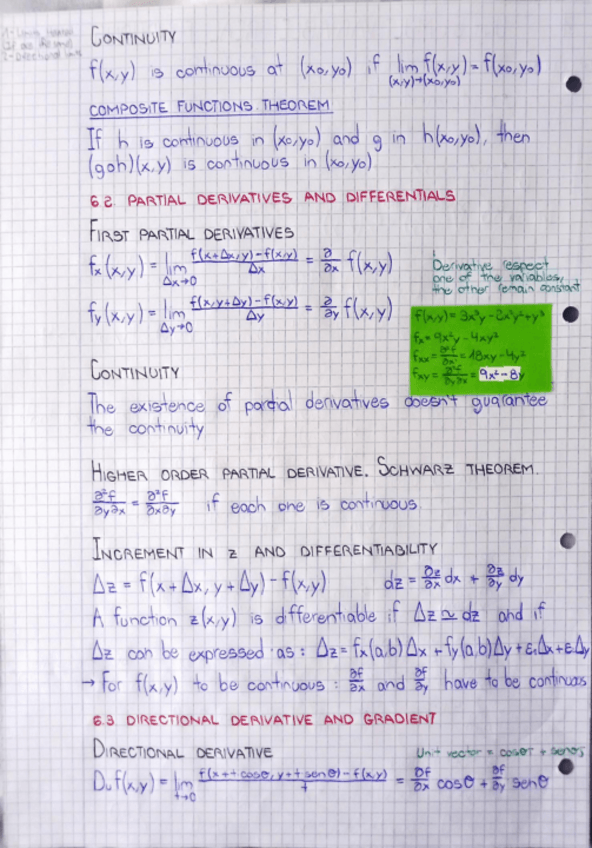 CONTINUITY
f(x,y) is continuous at (x₀,y₀) if lim f(x,y) = f(x₀,y₀)
(x,y)→(x₀,y₀)
COMPOSITE FUNCTIONS THEOREM
If h is continuous in (x₀,y₀) and g in h(x₀,y₀), then
(goh)(x,y) is continuous in (x₀,y₀)
6.2 PARTIAL DERIVATIVES AND DIFFERENTIALS
FIRST PARTIAL DERIVATIVES
fx(x,y) = lim Δx→0 (f(x+Δx,y)-f(x,y))/Δx = ∂/∂x f(x,y)
Derivative respect
one of the variables,
the other remain constant
fy(x,y) = lim Δy→0 (f(x,y+Δy)-f(x,y))/Δy = ∂/∂y f(x,y)
fx = 9x²y - 4xy²
fxx = ∂²f/∂x² = 18xy - 4y²
fxy = ∂²f/∂y∂x = 9x² - 8y
CONTINUITY
The existence of partial derivatives doesn't guarantee
the continuity
HIGHER ORDER PARTIAL DERIVATIVE. SCHWARZ THEOREM.
∂²f/∂y∂x = ∂²f/∂x∂y if each one is continuous.
INCREMENT IN z AND DIFFERENTIABILITY
Δz = f(x+Δx, y+Δy) - f(x,y) dz = ∂z/∂x dx + ∂z/∂y dy
A function z(x,y) is differentiable if Δz ≃ dz and if
Δz can be expressed as: Δz = fx(a,b)Δx + fy(a,b)Δy + ε₁Δx + εΔy
→ For f(x,y) to be continuous: ∂f/∂x and ∂f/∂y have to be continuos
6.3 DIRECTIONAL DERIVATIVE AND GRADIENT
DIRECTIONAL DERIVATIVE
Unit vector = cosθi + senθj
Duf(x,y) = lim t→0 (f(x+t cosθ, y+t senθ) - f(x,y))/t = ∂f/∂x cosθ + ∂f/∂y senθ